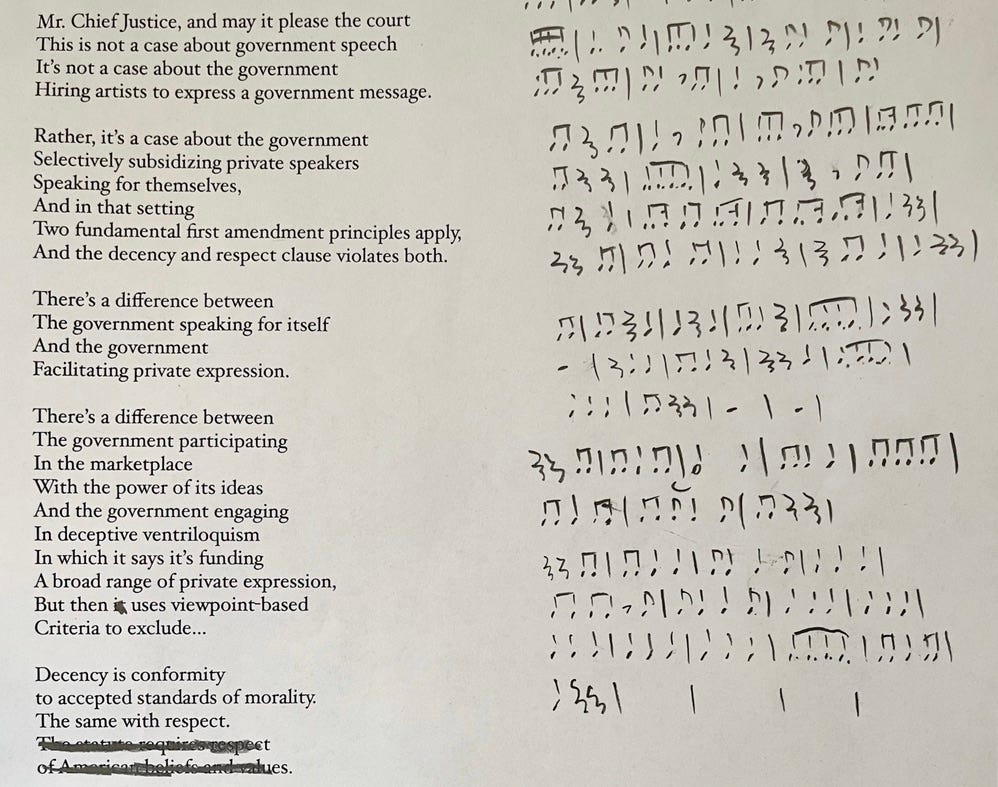 Mr. Chief Justice, and may it please the court
This is not a case about government speech
It's not a case about the government
Hiring artists to express a government message.
Rather, it's a case about the government
Selectively subsidizing private speakers
Speaking for themselves,
And in that setting
Two fundamental first amendment principles apply,
And the decency and respect clause violates both.
There's a difference between
The government speaking for itself
And the government
Facilitating private expression.
There's a difference between
The government participating
In the marketplace
With the power of its ideas
And the government engaging
In deceptive ventriloquism
In which it says it's funding
A broad range of private expression,
But then uses viewpoint-based
Criteria to exclude...
Decency is conformity
to accepted standards of morality.
The same with respect.
The statute requires respect
of American beliefs and values.